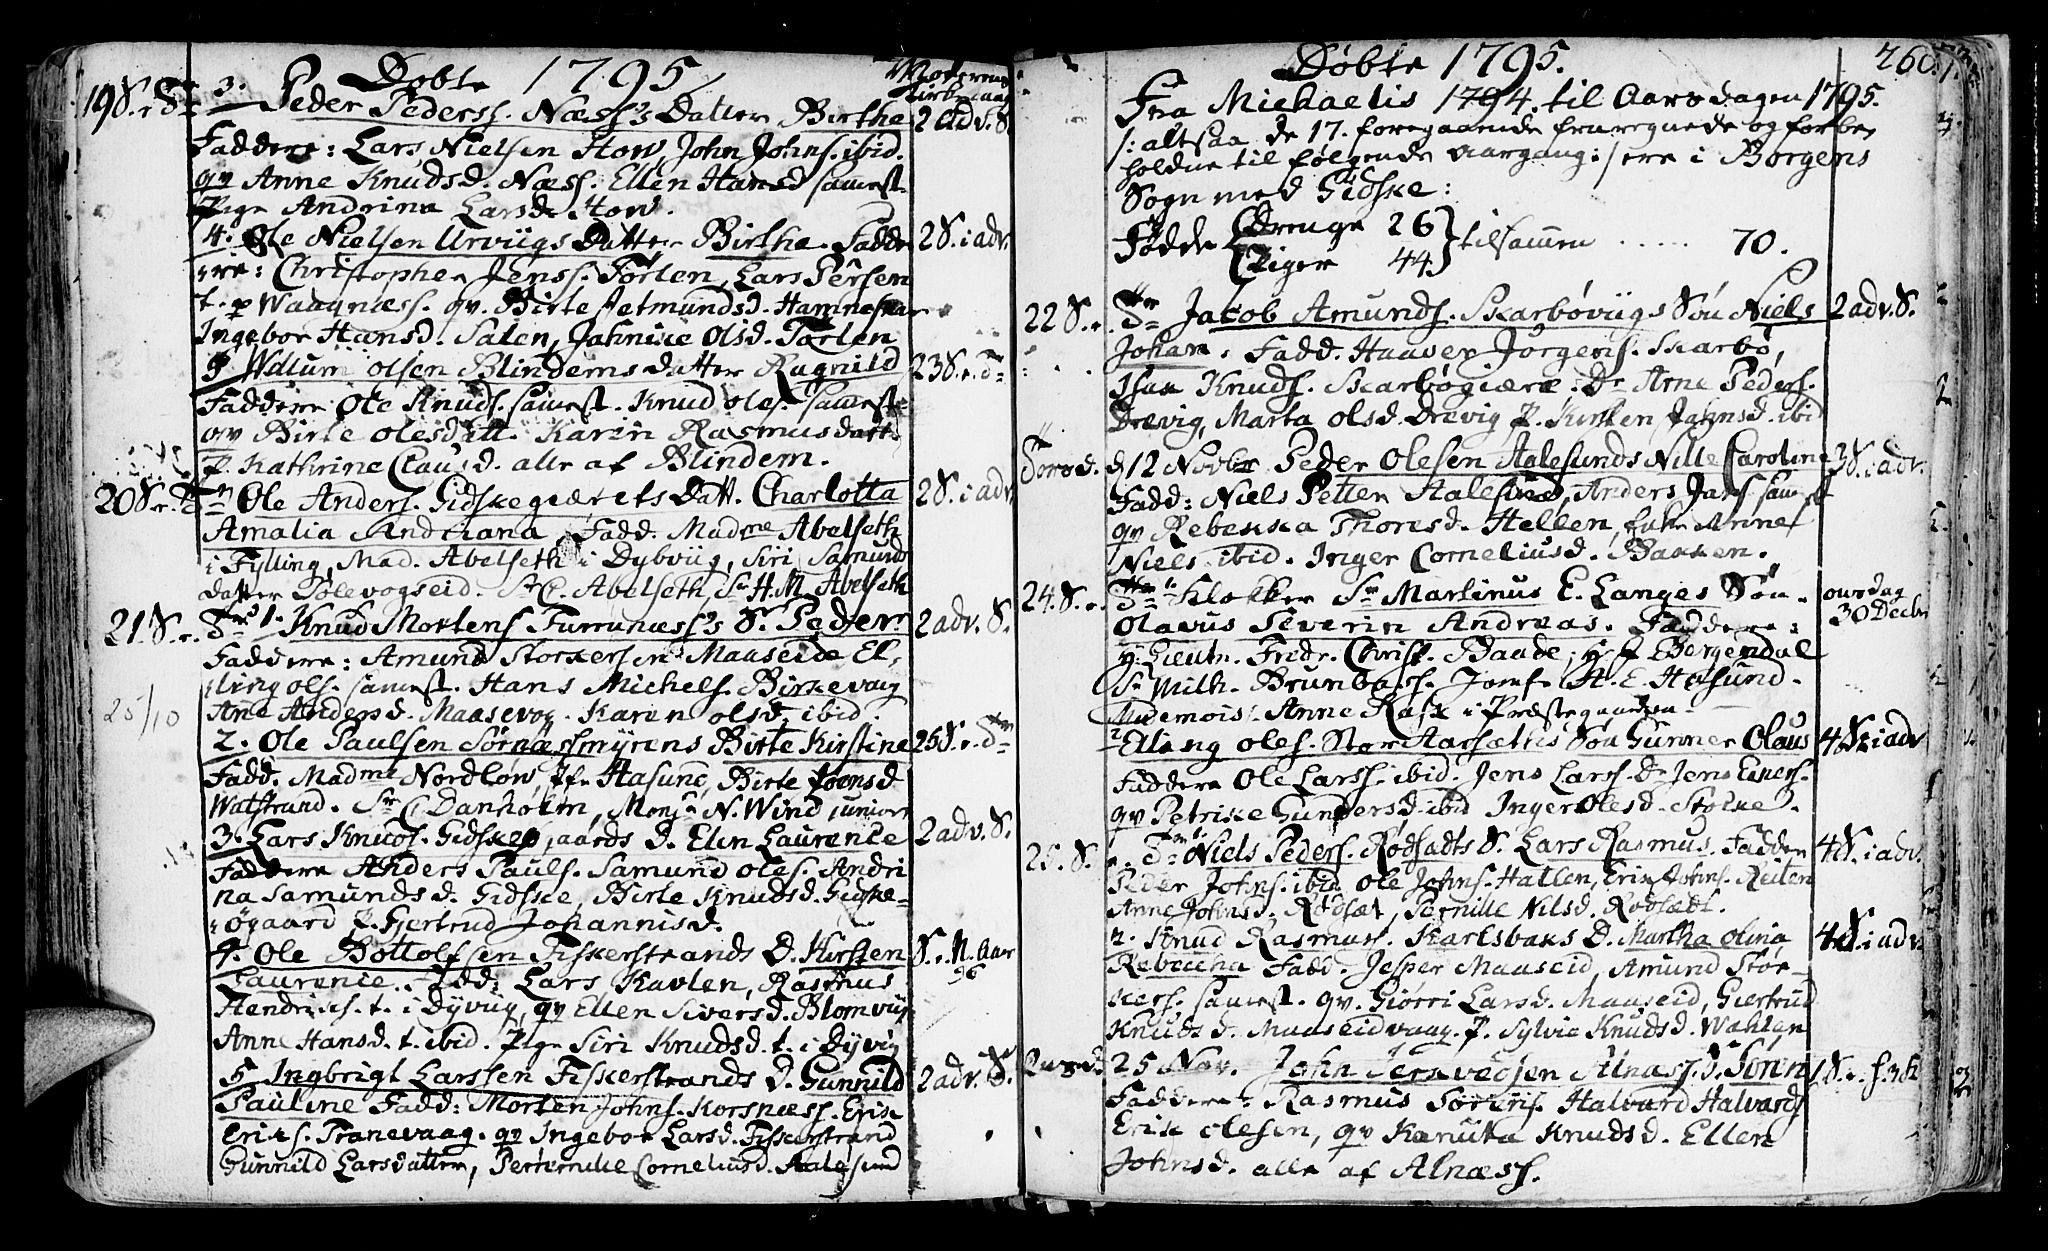 Døbte 1795
19 S. e. Tr. 3. Peder Peders. Næss's Datter Birthe 2 Adv. S.
Faddere: Lars Nielsen How, John Johns. ibid.
qv Anne Knudsd. Næss. Ellen Hansd samest.
Pige Andrina Larsd. How.
4. Ole Nielsen Urviigs Datter Birthe. Fadde 2 S. i adv.
re: Christopher Jenss. Torlen, Lars Persen
t. p Waagnæss. qv. Birte Hamneskar
Ingebor Hansd. Salen, Jahnike Olsd. Torlen
5 Willum olsen Blindems datter Ragnild 23 S. e. Tr
Faddere Ole Knuds. samest. Knud oles. samest.
qv Birte olesdatt. Karen Rasmusdatt.
P. Kathrine Clausd. alle af Blindem.
20 S. e. Tr Ole Anders. Gidskegiærets Datt. Charlotta 2 S. i adv.
Amalia Andriana, Fadd. Madme Abelseth
i Fylling, Mad. Abelseth i Dybviig, Siri Samunds
datter Bolevogseid. Sr C. Abelseth, Sr H. M. Abelseth
21 S. e. Tr 1. Knud Mortens Furrunæss's S. Peder 2 adv. S.
Faddere: Amund Storkersen Maaseide El-
ling ols. samest. Hans Michels. Birkevaag
Ane Andersd. Maasevog. Karen olsd. ibid.
25/10
2. Ole Paulsen Sørnæssmyrens Birte Kirstine 25 S. e. Tr
Fadd. Madme Nordlow, Jfr Hasund, Birte Joensd
Watstrand. Sr C Danholm, Monsr N. Wind junior
3. Lars Knuds. Gidskeø,aards D. Elen Laurence 2 adv. S.
Faddere Anders Pauls. Samund oles. Andri
na Samundsd. Gidske, Birte Knudsd. Gidske-
øgaard P. Gjertrud Johannisd.
4. Ole Bottolfsen Fiskerstrands D. Kirsten S. e. N. Aar
96
Laurence. Fadd: Lars Kavlen, Rasmus
Hendrichs. t. i Dyvug, qv Ellen Siversd. Blomvug
Anne Hansd. t. ibid. Pige Siri Knudsd. t. i Dyvig
5 Ingbrigt Larssen Fiskerstrands D. Gunnild 2 adv. S.
Pauline Fadd: Morten Johns. Korsnæss. Erik
Eriks. Tranevaag. qv Ingebor Larsd. Fiskerstrand
Gunnild Larsdatter, Corneliusd. Aalesund
Døbte 1795. 260.
Fra Michaelis 1794. til Aarsdagen 1795.
/: altsaa de 17. foregaaende fraregnede og forbe
holdne til følgende Aargang :/ ere i Borgens
Sogn med Gidske:
Fødde Drenge 26
Piger 44 tilsammen ..... 70.
22 S. e. Tr Jacob Amunds. Skarbøviigs Søn Niels 2 adv. S.
Johan. Fadd. Haaver Jørgens. Skarbø,
Isak Knuds. Skarbøgiære. Dr Arne Peders.
Drevig, Marta olsd. Drevig P. Kirsten Jahnsd. ibid
Torsd. d 12 Novbr Peder Olesen Aalesunds Nille Caroline 3 S. i adv.
Fadd: Niels Petter Aalesund, Anders Jans. samest
qv Rebekka Thoresd. Hellen, Anne
Niels ibid. Inger Corneliusd. Bakken.
24. S. e. Tr Klokker Sr Martinus E. Langes Søn onsdag
30 Decbr
Olavus Severin Andreas. Faddere:
Hr Lieutn. Fridr. Christ. Baade, Hr P Bergendal
Sr Wilh. Jomf. A. E. Hasund.
Mademois. Anne Rask i Præstegaarden
2 Elling oles. Aarsæths Søn Gunner Olaus 4 S. i adv
Faddere Ole Larss. ibid. Jens Larss. Dr Jens Eners.
qv Petrike Gundersd. ibid Inger Olesd. Stokke.
25. S. e. Tr 1. Niels Peders. Rødsædts S. Lars Rasmus. Fadder 4 S. i adv.
Peder Johns. ibid. Ole Johns. Hatlen, Erik Johns. Reiten
Anne Johnsd. Rødsæt, Pernille Nilsd. Rødsædt.
2. Knud Rasmuss. Karlsbaks D. Martha olina 4 S. i adv.
Rebeccha Fadd. Jesper Maaseid, Amund Stor-
kers. samest. qv. Giørri Larsd. Maaseid, Giertrud
Knudsd. Maaseidvaag. P. Sylvie Knudsd. Wahlen
Onsd. 25 Nov. John Alnæss. D. 1 S. e.
Faddere: Rasmus Sørens. Halvard Halvards
Erik olesen, qv Knudsd. Ellen
Johnsd. alle af Alnæss.